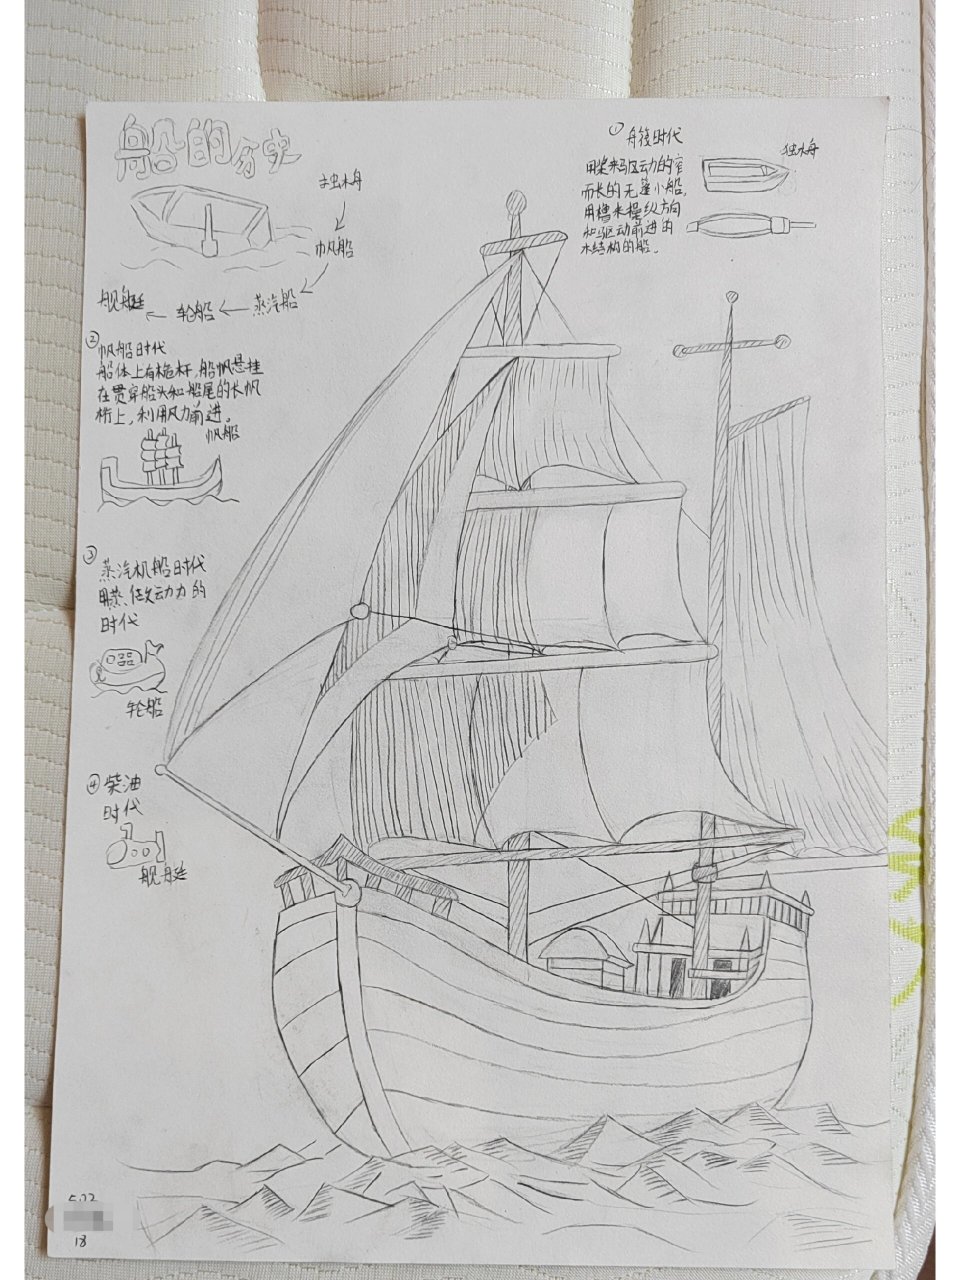 船的历史
独木舟
帆船
蒸汽船
轮船
舰艇
① 舟筏时代
用桨来驱动的窄
而长的无篷小船,
用橹来操纵方向
和驱动前进的
木结构的船。
独木舟
② 帆船时代
船体上有桅杆,船帆悬挂
在贯穿船头和船尾的长帆
桁上,利用风力前进。
帆船
③ 蒸汽机船时代
用蒸 做动力的
时代
轮船
④ 柴油
时代
舰艇
502
18